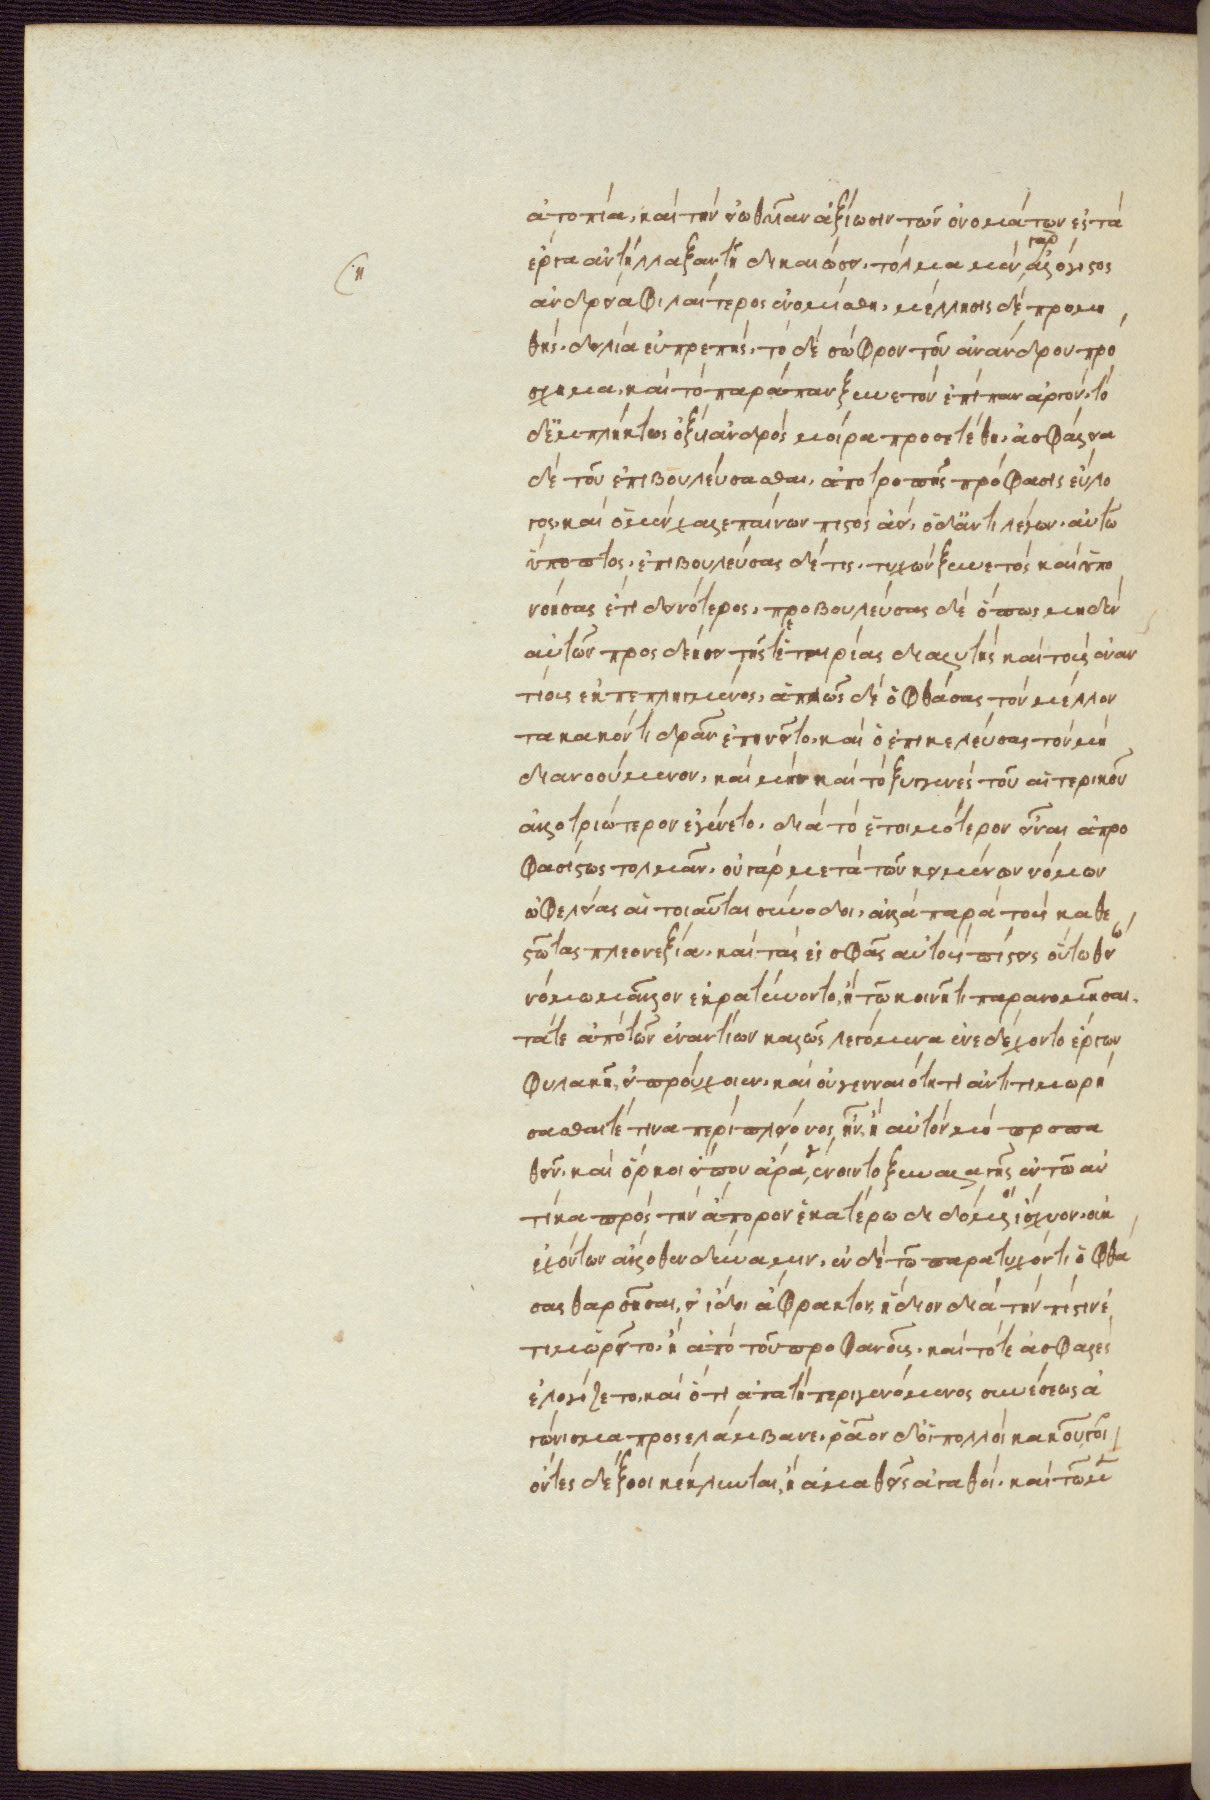 ἀτοπία. καὶ τὴν εἰωθυῖαν ἀξίωσιν τῶν ὀνομάτων ἐς τὰ
ἔργα ἀντήλλαξαν τῇ δικαιώσει. τόλμα μὲν γὰρ ἀλόγιστος
ἀνδρεία φιλαίτερος ἐνομίσθη. μέλλησις δὲ προμη
θὴς. δειλία εὐπρεπής. τὸ δὲ σῶφρον τοῦ ἀνάνδρου πρό
σχημα. καὶ τὸ πρὸς ἅπαν ξυνετὸν ἐπὶ πᾶν ἀργόν. τὸ
δ' ἐμπλήκτως ὀξὺ ἀνδρὸς μοίρα προσετέθη. ἀσφάλεια
δὲ τοῦ ἐπιβουλεύσασθαι. ἀποτροπῆς πρόφασις εὔλο
γος. καὶ ὁ μὲν χαλεπαίνων πιστὸς ἀεί. ὁ δ' ἀντιλέγων. αὐτῷ
ὕποπτος. ἐπιβουλεύσας δέ τις. τυχὼν ξυνετὸς καὶ ὑπο
νοήσας ἔτι δεινότερος. προβουλεύσας δὲ ὅπως μηδὲν
αὐτῶν προσδεήσει τῆς τε ἑταιρίας διαλυτὴς καὶ τοὺς ἐναν
τίους ἐκπεπληγμένος. ἁπλῶς δὲ ὁ φθάσας τὸν μέλλον
τα κακόν τι δρᾶν ἐπῃνεῖτο. καὶ ὁ ἐπικελεύσας τὸν μὴ
διανοούμενον. καὶ μὴν καὶ τὸ ξυγγενὲς τοῦ ἑταιρικοῦ
ἀλλοτριώτερον ἐγένετο. διὰ τὸ ἑτοιμότερον εἶναι ἀπρο
φασίστως τολμᾶν. οὐ γὰρ μετὰ τῶν κειμένων νόμων
ὠφελείας αἱ τοιαῦται σύνοδοι. ἀλλὰ παρὰ τοὺς καθε
στῶτας πλεονεξίᾳ. καὶ τὰς ἐς σφᾶς αὐτοὺς πίστεις οὐ τῷ θείῳ
νόμῳ μᾶλλον ἐκρατύνοντο. ἢ τῷ κοινῇ τι παρανομῆσαι.
τά τε ἀπὸ τῶν ἐναντίων καλῶς λεγόμενα ἐνεδέχοντο ἔργων
φυλακῇ, εἰ προύχοιεν. καὶ οὐ γενναιότητι ἀντιτιμωρή
σασθαί τε τινα περὶ πλείονος ἦν. ἢ αὐτὸν μὴ προπα
θεῖν. καὶ ὅρκοι εἴ που ἄρα γένοιντο ξυναλλαγῆς ἐν τῷ αὐ
τίκα πρὸς τὴν ἄπορον ἑκατέρῳ διδόμενοι ἴσχυον. οὐκ
ἐχόντων ἄλλοθεν δύναμιν. ἐν δὲ τῷ παρατυχόντι ὁ φθά
σας θαρσῆσαι, εἰ ἴδοι ἄφρακτον, ἥδιον διὰ τὴν πίστιν ἐ
τιμωρεῖτο. ἢ ἀπὸ τοῦ προφανοῦς. καὶ τό τε ἀσφαλὲς
ἐλογίζετο. καὶ ὅτι ἀπάτῃ περιγενόμενος συνέσεως ἀ
γώνισμα προσελάμβανε. ῥᾷον δ' οἱ πολλοὶ κακοῦργοι
ὄντες δεξιοὶ κέκληνται, ἢ ἀμαθεῖς ἀγαθοί. καὶ τῷ μὲν